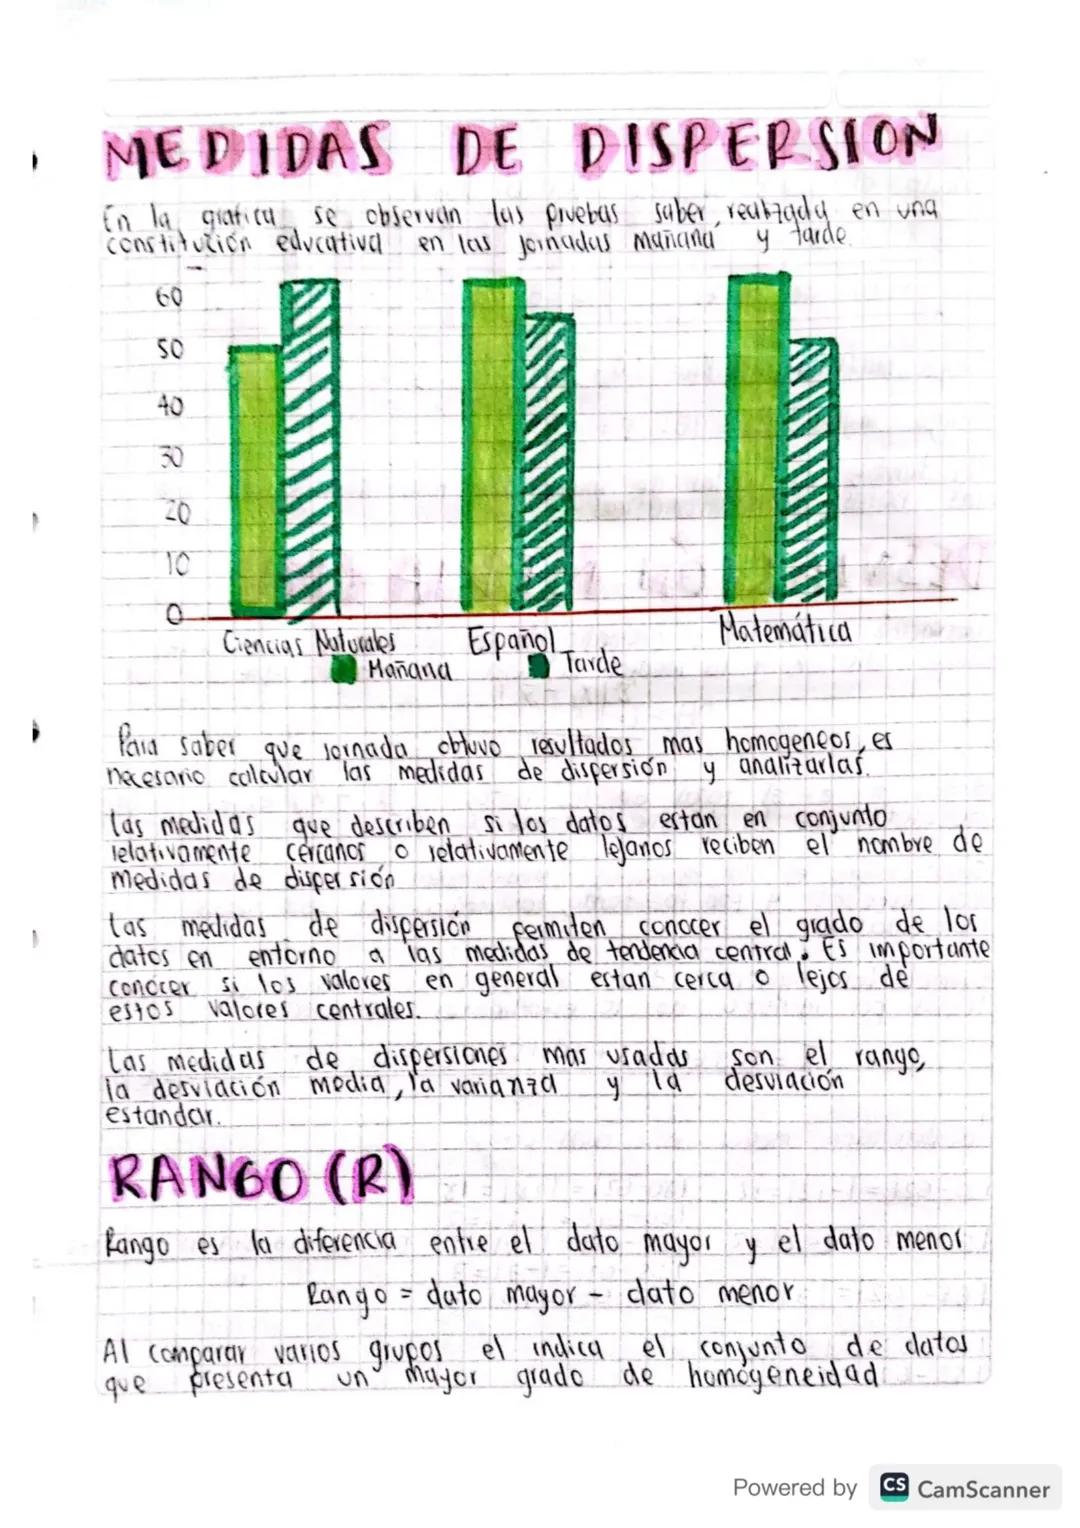 MEDIDAS DE DISPERSION
En la grafica se observan las pruebas saber, realizada en una
constitución educativa en las jornadas mañana y tarde.
60
50
40
30
20
10
0
Ciencias Naturales Español Matemática
Mañana Tarde
Para saber que jornada obtuvo resultados mas homogeneos, es
necesario calcular las medidas de dispersión y analizarlas.
las medidas que describen si los datos estan en conjunto
relativamente cercanos o relativamente lejanos reciben el nombre de
medidas de dispersión
Las medidas de dispersión permiten conocer el grado de los
datos en entorno a las medidas de tendencia central. Es importante
conocer si los valores en general estan cerca o lejos de
estos valores centrales.
Las medidas de dispersiones mas usadas son el rango,
la desviación media, la varianza y la desviación
estandar.
RANGO (R)
Rango es la diferencia entre el dato mayor y el dato menor
Rango = dato mayor - dato menor
Al comparar varios grupos el indica el conjunto de datos
que presenta un mayor grado de homogeneidad
Powered by CS CamScanner